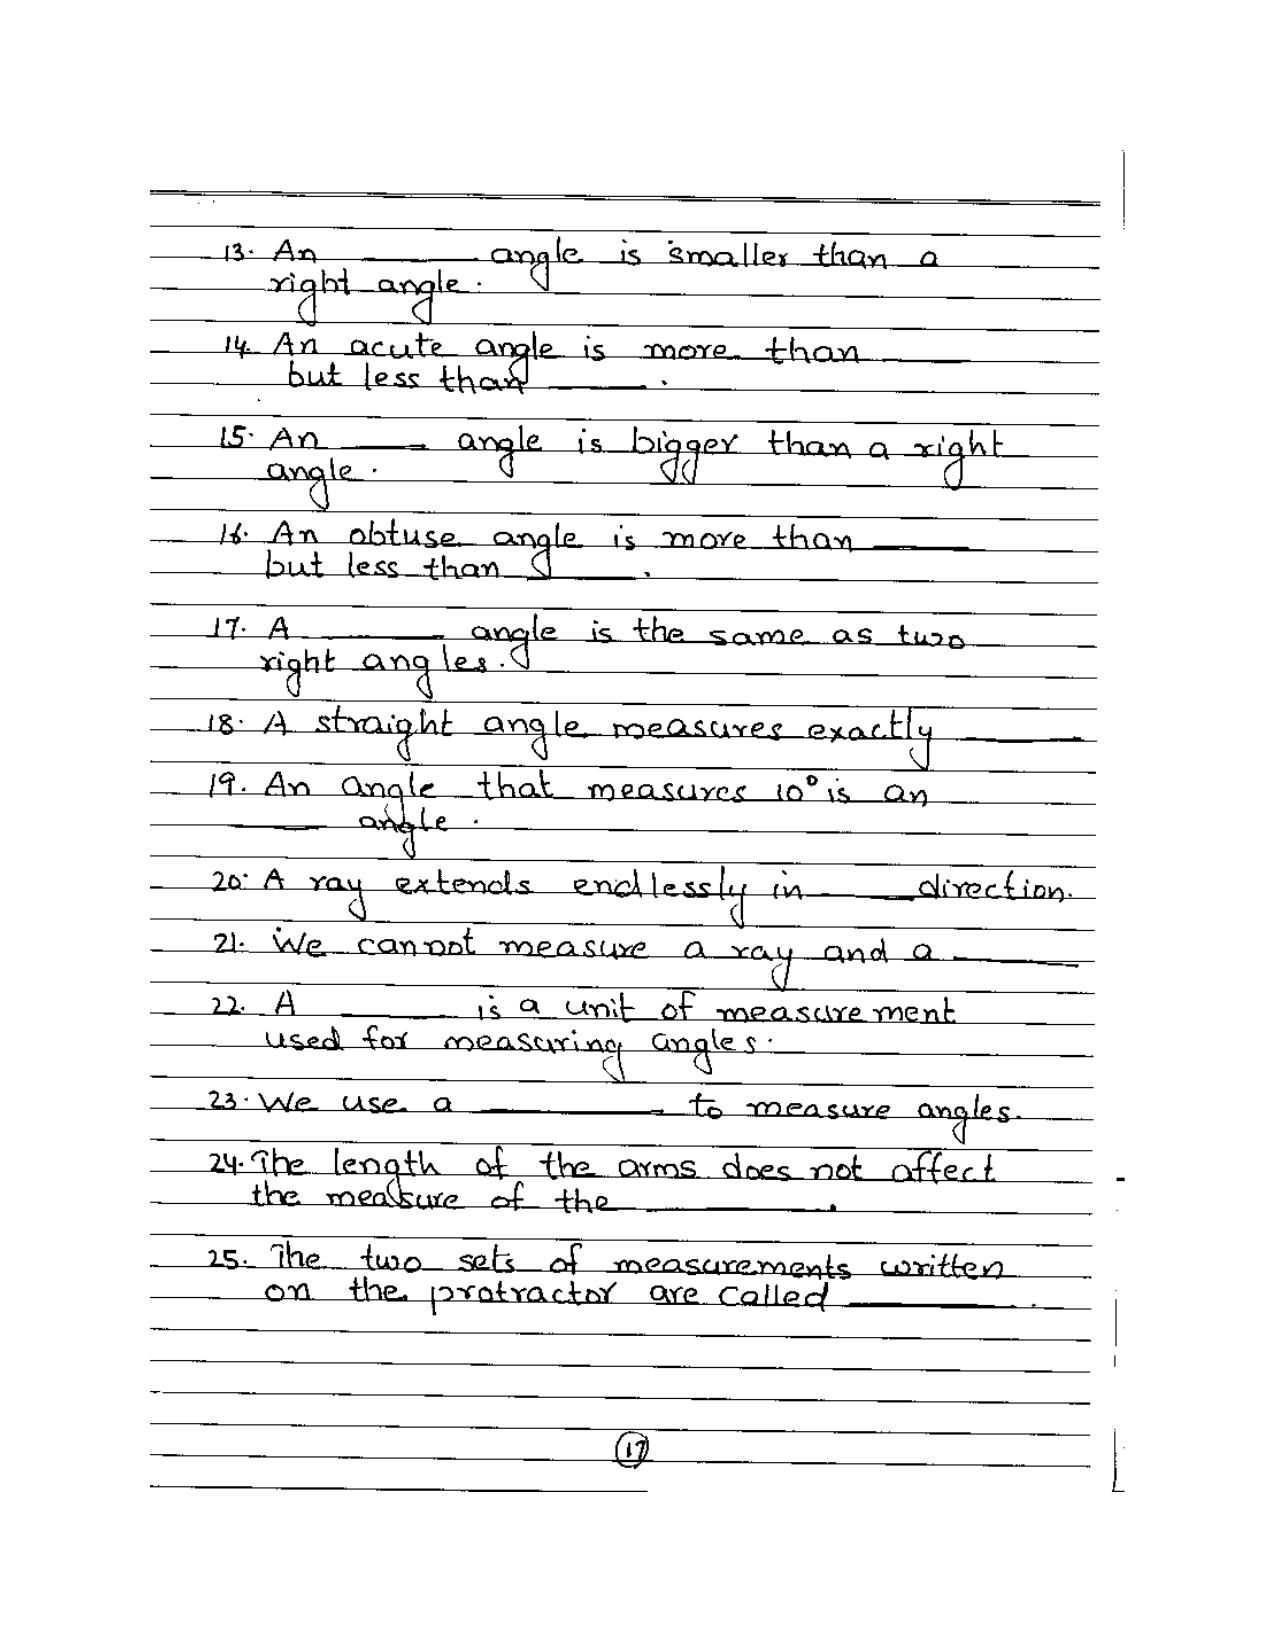 13. An ______ angle is smaller than a
right angle.
14. An acute angle is more than ______
but less than ______.
15. An ______ angle is bigger than a right
angle.
16. An obtuse angle is more than ______
but less than ______.
17. A ______ angle is the same as two
right angles.
18. A straight angle measures exactly ______
19. An angle that measures 10° is an
______ angle.
20. A ray extends endlessly in ______ direction.
21. We cannot measure a ray and a ______
22. A ______ is a unit of measurement
used for measuring angles.
23. We use a ______ to measure angles.
24. The length of the arms does not affect
the measure of the ______.
25. The two sets of measurements written
on the protractor are called ______.
17